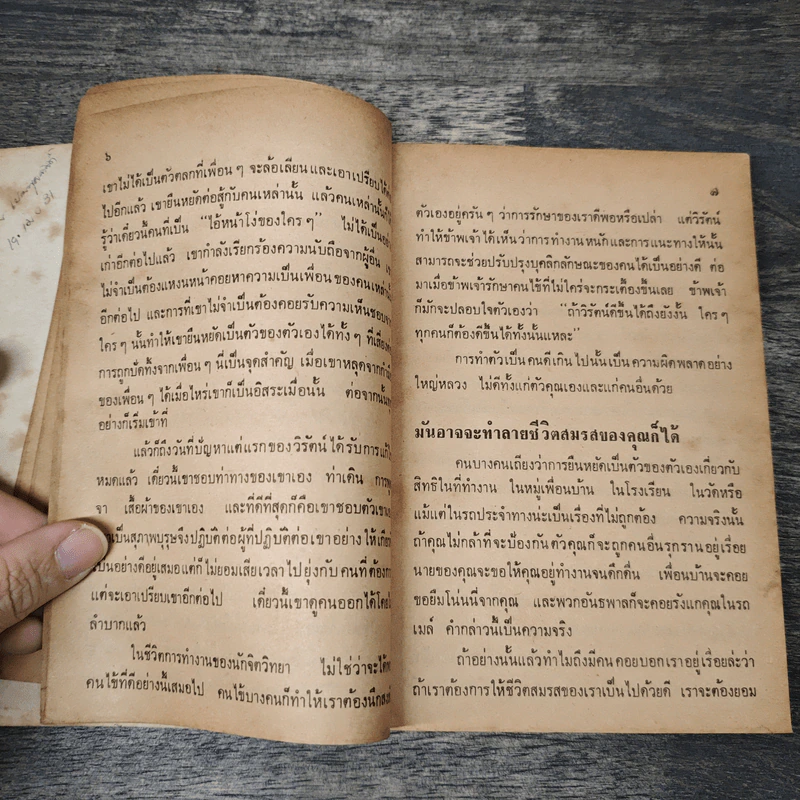 ๖
เขาไม่ได้เป็นตัวตลกที่เพื่อน ๆ จะล้อเลียน และเอาเปรียบได้
ไปอีกแล้ว เขายืนหยัดต่อสู้กับคนเหล่านั้น แล้วคนเหล่านั้นก็
รู้ว่าเดี๋ยวนี้คนที่เป็น "ไอ้หน้าโง่ของใคร ๆ" ไม่ได้เป็น
เก่าอีกต่อไปแล้ว เขากำลังเรียกร้องความนับถือจากผู้อื่น
ไม่จำเป็นต้องแหงนหน้าคอยหาความเป็นเพื่อนของคนเหล่า
อีกต่อไป และการที่เขาไม่จำเป็นต้องคอยรับความเห็นชอบ
ใคร ๆ นั้นทำให้เขายืนหยัดเป็นตัวของตัวเองได้ทั้ง ๆ ที่เสี่ยง
การถูกบัดทิ้งจากเพื่อน ๆ นี่เป็นจุดสำคัญ เมื่อเขาหลุดจาก
ของเพื่อน ๆ ได้เมื่อไหร่เขาก็เป็นอิสระเมื่อนั้น ต่อจากนั้น
อย่างก็เริ่มเข้าที่
แล้วก็ถึงวันที่ปัญหาแต่แรกของวิรัตน์ได้รับการแก้
หมดแล้ว เดี๋ยวนี้เขาชอบท่าทางของเขาเอง ท่าเดิน การ
จา เสื้อผ้าของเขาเอง และที่ดีที่สุดก็คือเขาชอบตัวเขา
เป็นสุภาพบุรุษจึงปฏิบัติต่อผู้ที่ปฏิบัติต่อเขาอย่างให้
เป็นอย่างดีอยู่เสมอแต่ก็ไม่ยอมเสียเวลาไปยุ่งกับคนที่ต้องการ
แต่จะเอาเปรียบเขาอีกต่อไป เดี๋ยวนี้เขาดูคนออกได้โดย
ลำบากแล้ว
ในชีวิตการทำงานของนักจิตวิทยา ไม่ใช่ว่าจะได้
คนไข้ที่ดีอย่างนี้เสมอไป คนไข้บางคนก็ทำให้เราต้องนึก
๗
ตัวเองอยู่ครัน ๆ ว่าการรักษาของเราดีพอหรือเปล่า แต่วิรัตน์
ทำให้ข้าพเจ้าได้เห็นว่าการทำงานหนักและการแนะทางให้นั้น
สามารถจะช่วยปรับปรุงบุคลิกลักษณะของคนได้เป็นอย่างดี ต่อ
มาเมื่อข้าพเจ้ารักษาคนไข้ที่ไม่ใคร่จะกระเตื้องขึ้นเลย ข้าพเจ้า
ก็มักจะปลอบใจตัวเองว่า "ถ้าวิรัตน์ดีขึ้นได้ถึงยังงั้น ใคร ๆ
ทุกคนก็ต้องดีขึ้นได้ทั้งนั้นแหละ"
การทำตัวเป็นคนดีเกินไปนั้นเป็นความผิดพลาดอย่าง
ใหญ่หลวง ไม่ดีทั้งแก่ตัวคุณเองและแก่คนอื่นด้วย
มันอาจจะทำลายชีวิตสมรสของคุณก็ได้
คนบางคนเถียงว่าการยืนหยัดเป็นตัวของตัวเองเกี่ยวกับ
สิทธิในที่ทำงาน ในหมู่เพื่อนบ้าน ในโรงเรียน ในวัดหรือ
แม้แต่ในรถประจำทางน่ะเป็นเรื่องที่ไม่ถูกต้อง ความจริงนั้น
ถ้าคุณไม่กล้าที่จะป้องกันตัวคุณก็จะถูกคนอื่นรุกรานอยู่เรื่อย
นายของคุณจะขอให้คุณอยู่ทำงานจนดึกดื่น เพื่อนบ้านจะคอย
ขอยืมโน่นนี่จากคุณ และพวกอันธพาลก็จะคอยรังแกคุณในรถ
เมล์ คำกล่าวนี้เป็นความจริง
ถ้าอย่างนั้นแล้วทำไมถึงมีคนคอยบอกเราอยู่เรื่อยล่ะว่า
ถ้าเราต้องการให้ชีวิตสมรสของเราเป็นไปด้วยดี เราจะต้องยอม